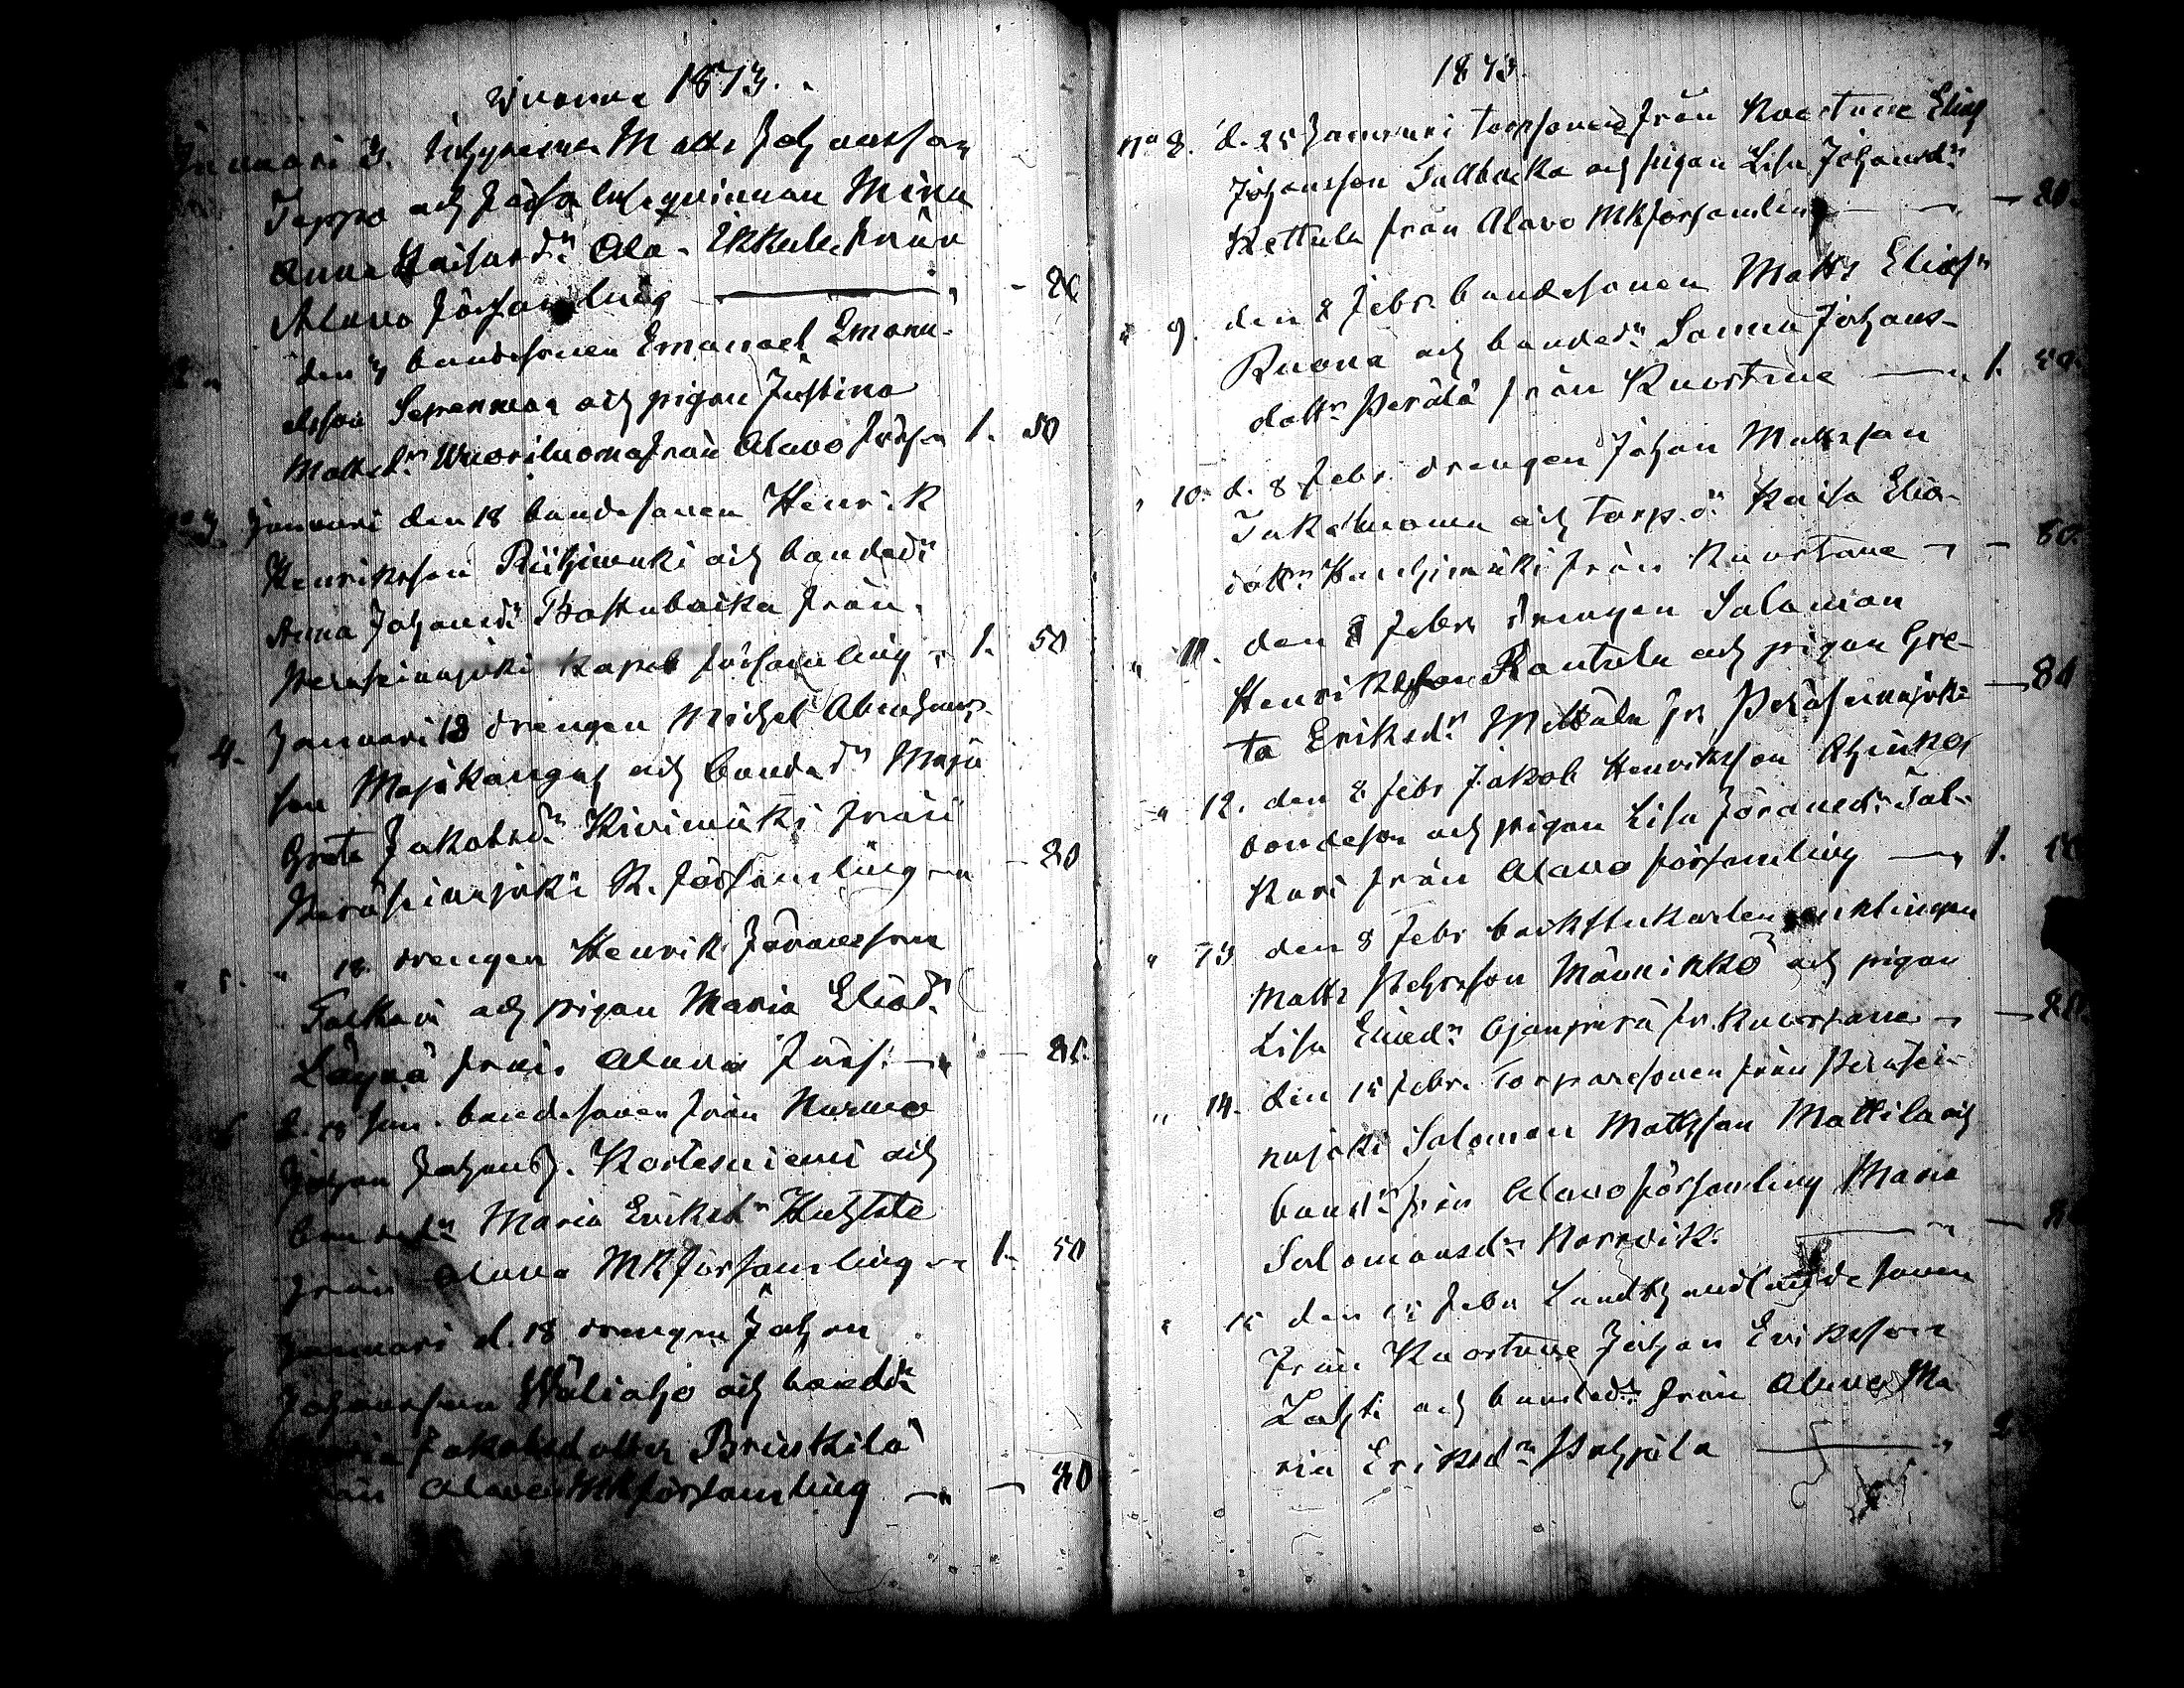 Wuonna 1873.
Januari 3. Mats Johansson
Teppo och qvinnan Mina
Anna Kaisasdr Ala-Ikkala från
Alavo församling — 80
2 den 3 bondesonen Emanuel Emanu-
elsson Sepänmaa och pigan Justina
Mattsdr Wuoriluoma från Alavo förs. 1. 50
No 3. Januari den 18 bondesonen Henrik
Henriksson Riihimäki och bondedr
Anna Johansdr Rastubacka från
Peräseinäjoki kapell församling 1. 50
4. Januari 18 drengen Michel Abrahams-
son Majakangas och bondedr Maja
Greta Jakobsdr Kivimäki från
Peräseinäjoki K. församling — 80
5. " 18 drengen Henrik Jöransson
Talkari och pigan Maria Eliedr
Läyrä från Alavo förs. — 80.
6 d. 18 Jan. bondesonen från Nurmo
Johan Johans. Kortesniemi och
bondedr Maria Eriksdr Huhtala
från Alavo MKförsamling 1. 50
Januari d. 18 drengen Johan
Johansson Wäliaho och bondedr
Maria Jakobsdotter Priiskilä
från Alavo MKförsamling — 80
1873.
No 8. d. 25 Januari torpsonen från Kuortane Elias
Johansson Tallbacka och pigan Lisa Johansdr
Kettula från Alavo MKförsamling — 80.
" 9. den 8 Febr. bondesonen Matts Eliass
Ruona och bondedr Sanna Johans-
dottr Perälä från Kuortane 1. 50.
" 10. d. 8 Febr. drengen Johan Mattsson
Jakoluoma och torp.d. Kaisa Elia-
dottr Harjumäki från Kuortane — 80.
" 11. den 8 Febr drengen Salomon
Henriksson Rantala och pigan Gre-
ta Eriksdr Mettälä fr Peräseinäjoki — 80
" 12. den 8 Febr Jakob Henriksson Ahinko
bondeson och pigan Lisa Jöransdr Tal-
kari från Alavo församling 1. 50
" 13 den 8 Febr backstukarlen enklingen
Matts Pehrsson Männikkö och pigan
Lisa Eliedr Ojanperä fr. Kuortane — 80.
" 14. den 15 Febr. Torparesonen från Peräsei-
näjoki Salomon Mattsson Mattila och
bondr från Alavo församling Maria
Salomonsdr Norrvik. — 80
" 15 den 15 Febr Landbondesonen
från Kuortane Johan Eriksson
Lahti och bondedr från Alavo Ma
ria Eriksdr Pohjola